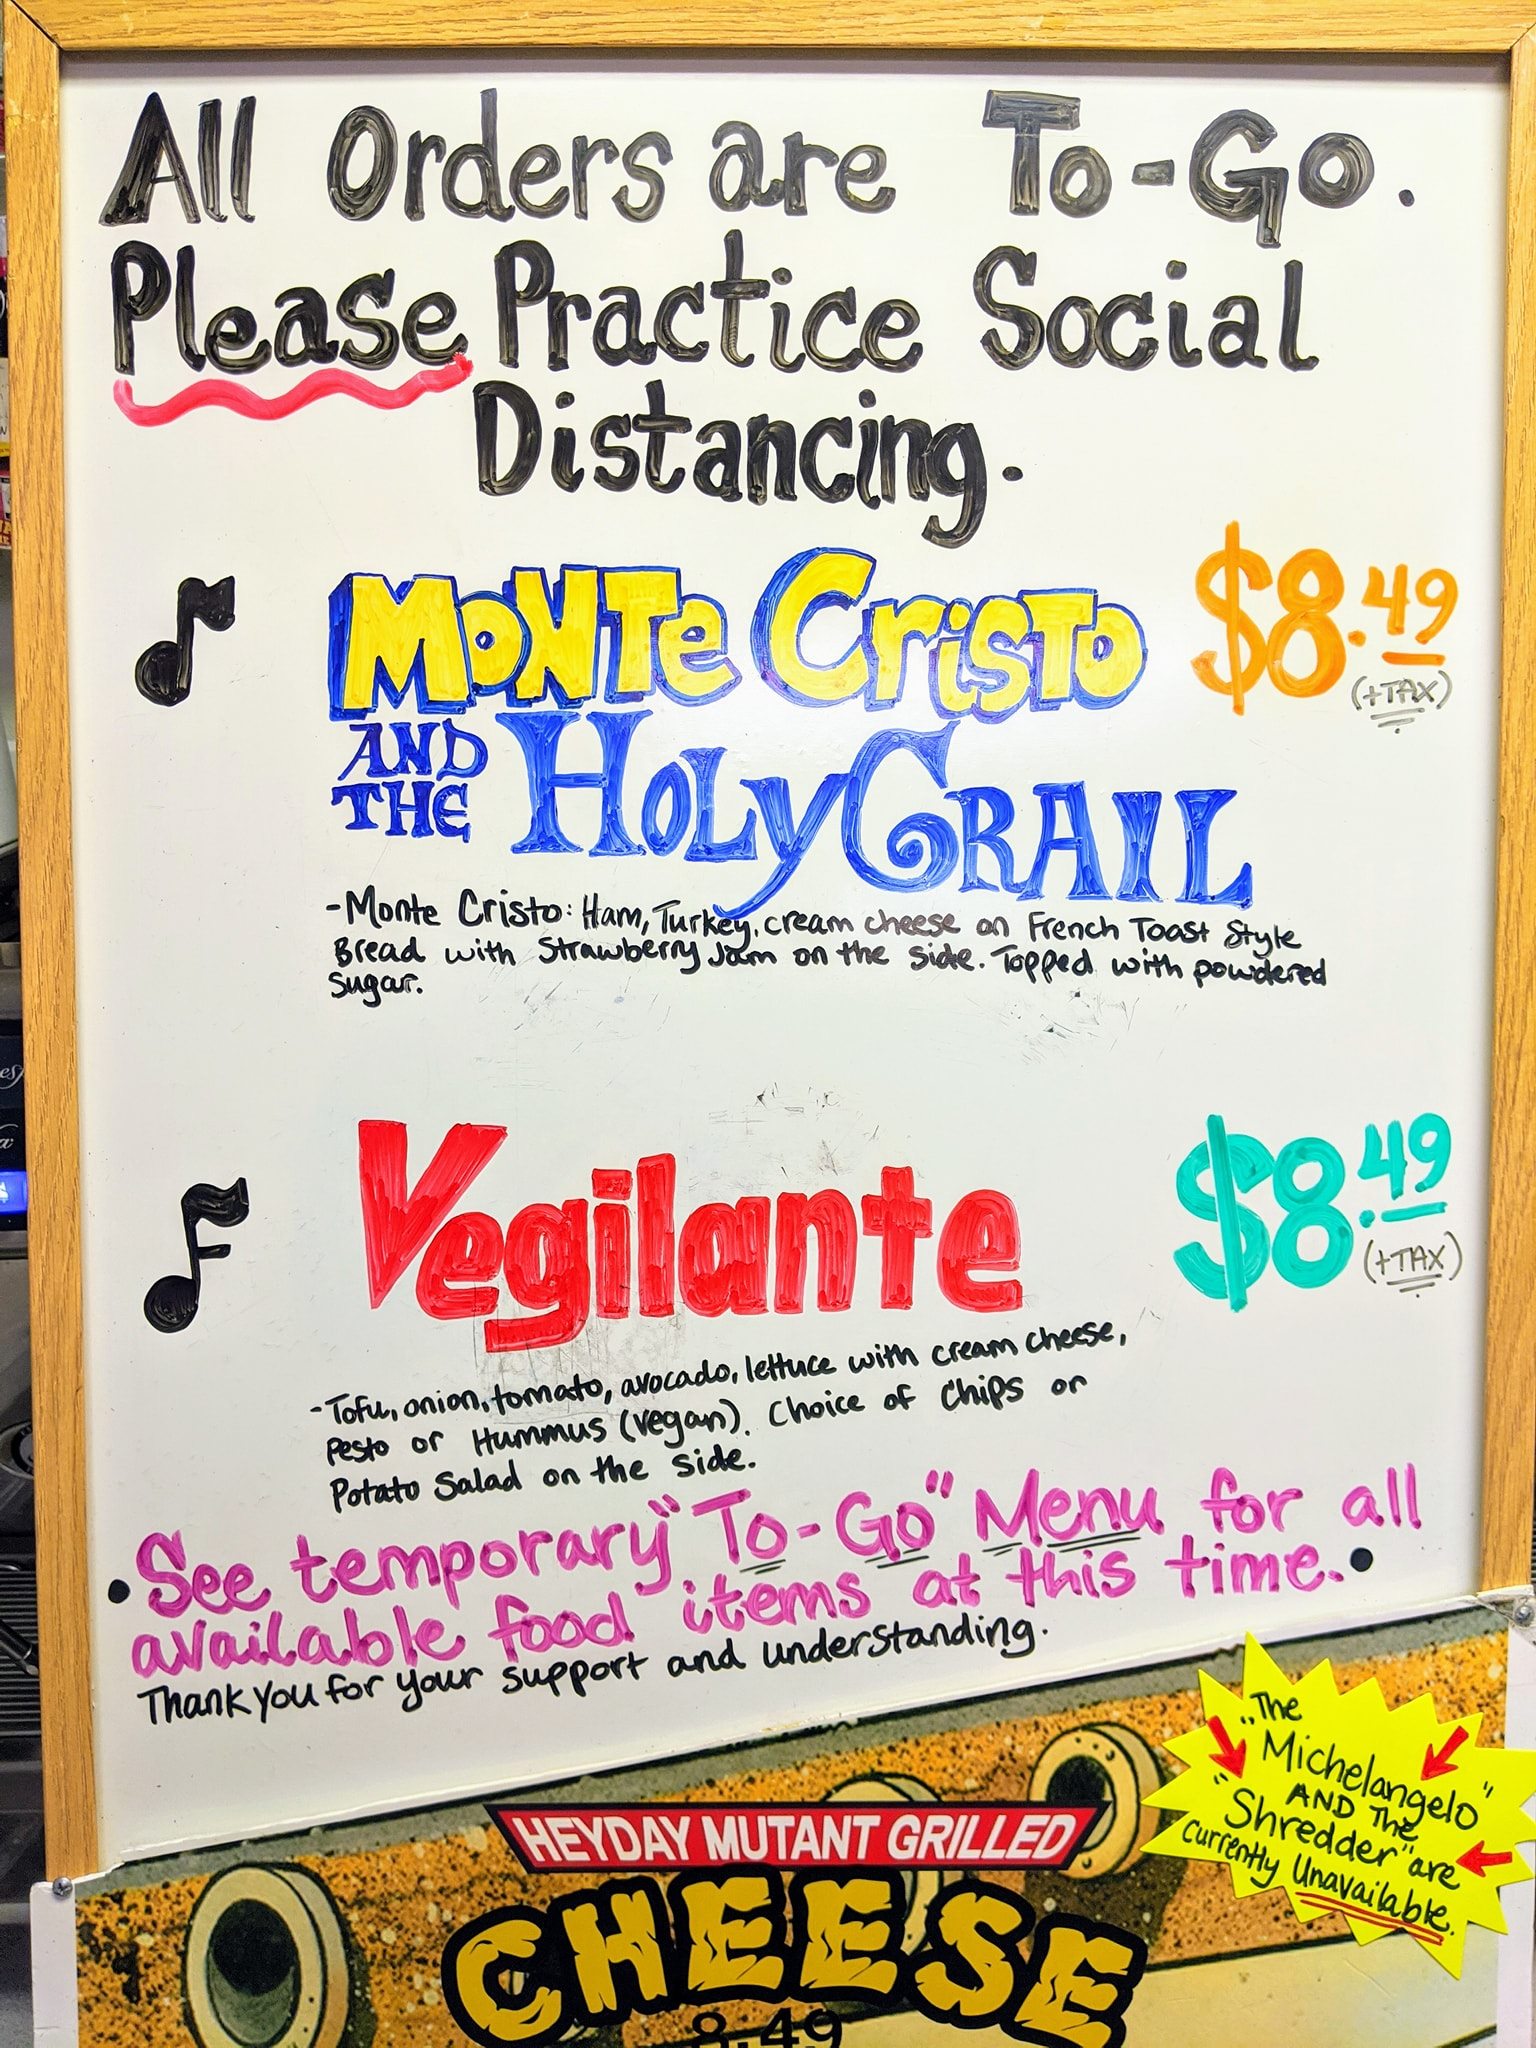 All Orders are To-Go.
Please Practice Social
Distancing.
Monte Cristo $8.49
(+TAX)
AND THE HOLY GRAIL
-Monte Cristo: Ham, Turkey, cream cheese on French Toast Style
Bread with Strawberry Jam on the side. Topped with powdered
sugar.
Vegilante $8.49
(+TAX)
-Tofu, onion, tomato, avocado, lettuce with cream cheese,
Pesto or Hummus (vegan). Choice of Chips or
Potato Salad on the side.
• See temporary "To-Go" Menu for all
available food items at this time. •
Thank you for your support and understanding.
"The
Michelangelo"
AND The
"Shredder" are
Currently Unavailable.
HEYDAY MUTANT GRILLED
CHEESE
8.49